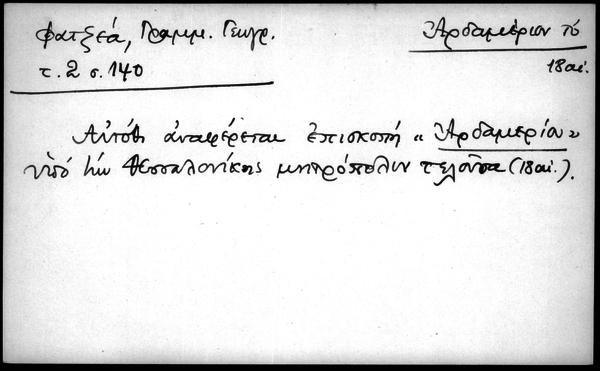 Φατζεά, Γραμμ. Γεωγρ.
τ. 2 σ. 140
Ἀρδαμέριον τό
18 αἰ.
Αὐτόθι ἀναφέρεται ἐπισκοπή « Ἀρδαμερίου »
ὑπό τήν Θεσσαλονίκης μητρόπολιν τελοῦσα (18 αἰ.).